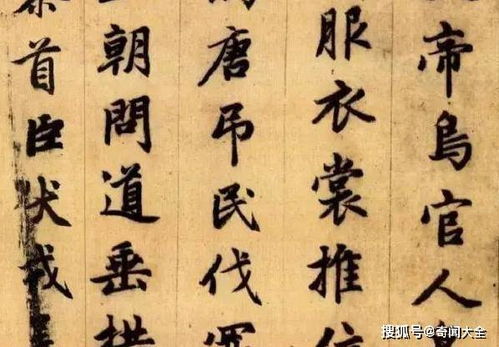 帝鳥官人
服衣裳推位
唐吊民伐罪
朝問道垂拱
首臣伏戎
搜狐号@奇闻大全